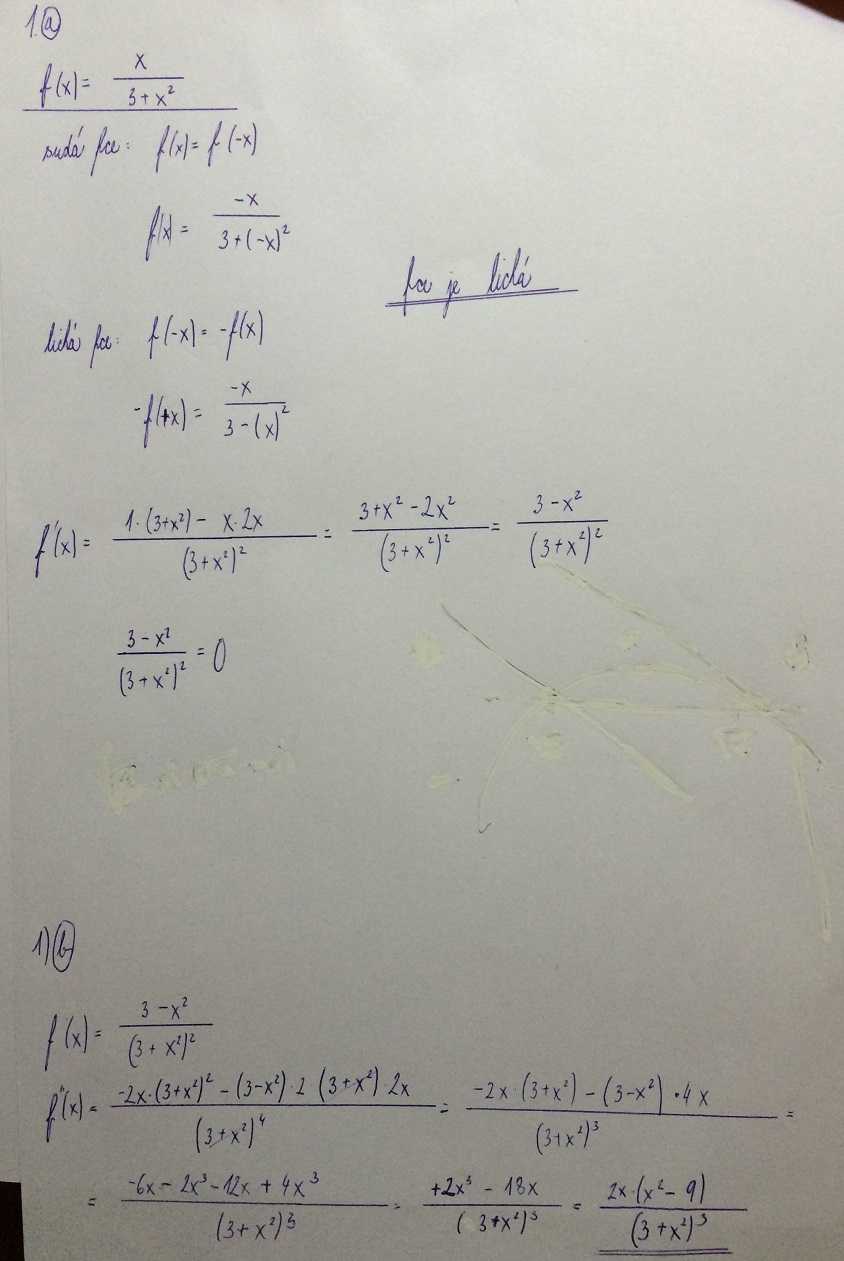 1. a
f(x) = x / (3 + x²)
sudá fce: f(x) = f(-x)
f(x) = -x / (3 + (-x)²)
fce je lichá
lichá fce: f(-x) = -f(x)
-f(+x) = -x / (3 - (x)²)
f'(x) = (1·(3+x²) - x·2x) / (3+x²)² = (3+x² - 2x²) / (3+x²)² = (3 - x²) / (3+x²)²
(3 - x²) / (3+x²)² = 0
1) b
f'(x) = (3 - x²) / (3 + x²)²
f''(x) = (-2x·(3+x²)² - (3-x²)·2(3+x²)·2x) / (3+x²)⁴ = (-2x·(3+x²) - (3-x²)·4x) / (3+x²)³ =
= (-6x - 2x³ - 12x + 4x³) / (3+x²)³ = (+2x³ - 18x) / (3+x²)³ = (2x·(x² - 9)) / (3+x²)³